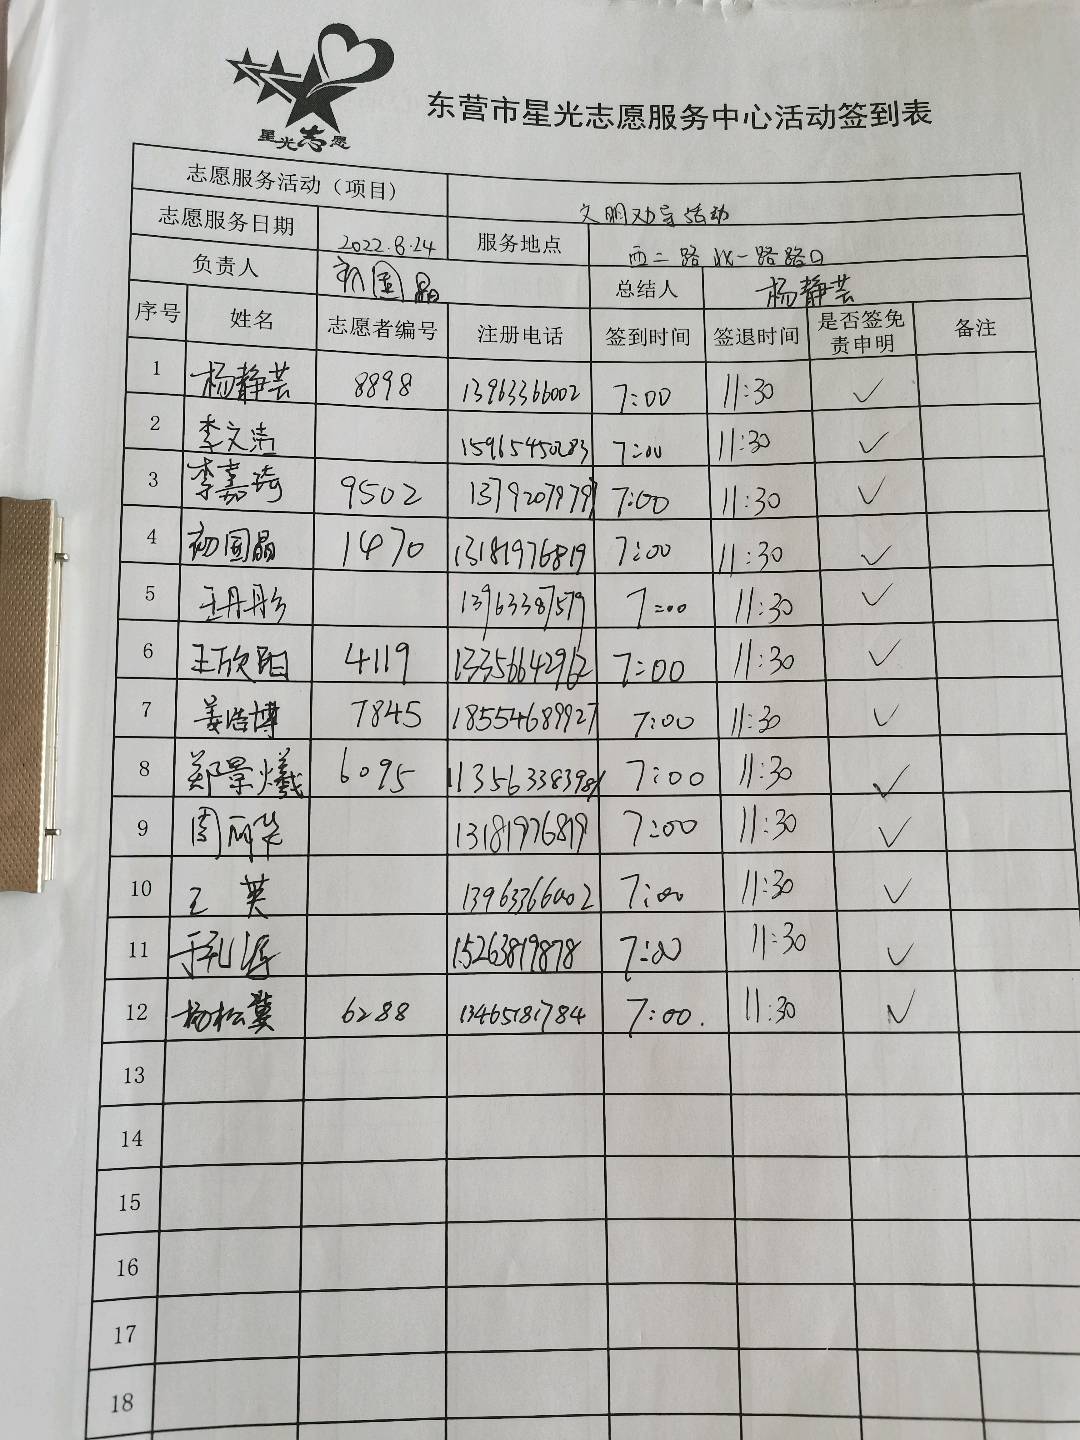 星光志愿
东营市星光志愿服务中心活动签到表
志愿服务活动（项目） 文明劝导活动
志愿服务日期 2022.8.24 服务地点 西二路北一路路口
负责人 初国晶 总结人 杨静芸
序号 姓名 志愿者编号 注册电话 签到时间 签退时间 是否签免责申明 备注
1 杨静芸 8898 13963366002 7:00 11:30 ✓
2 李文洁 15965450283 7:00 11:30 ✓
3 李嘉琦 9502 7:00 11:30 ✓
4 初国晶 1470 13181976819 7:00 11:30 ✓
5 王丹丹 13963387579 7:00 11:30 ✓
6 王欣阳 4119 13356642962 7:00 11:30 ✓
7 姜浩博 7845 18554689927 7:00 11:30 ✓
8 郑景曦 6095 7:00 11:30 ✓
9 周丽华 13181976819 7:00 11:30 ✓
10 王英 13963366002 7:00 11:30 ✓
11 15263819878 7:00 11:30 ✓
12 杨松冀 6288 13465181784 7:00. 11:30 ✓
13
14
15
16
17
18